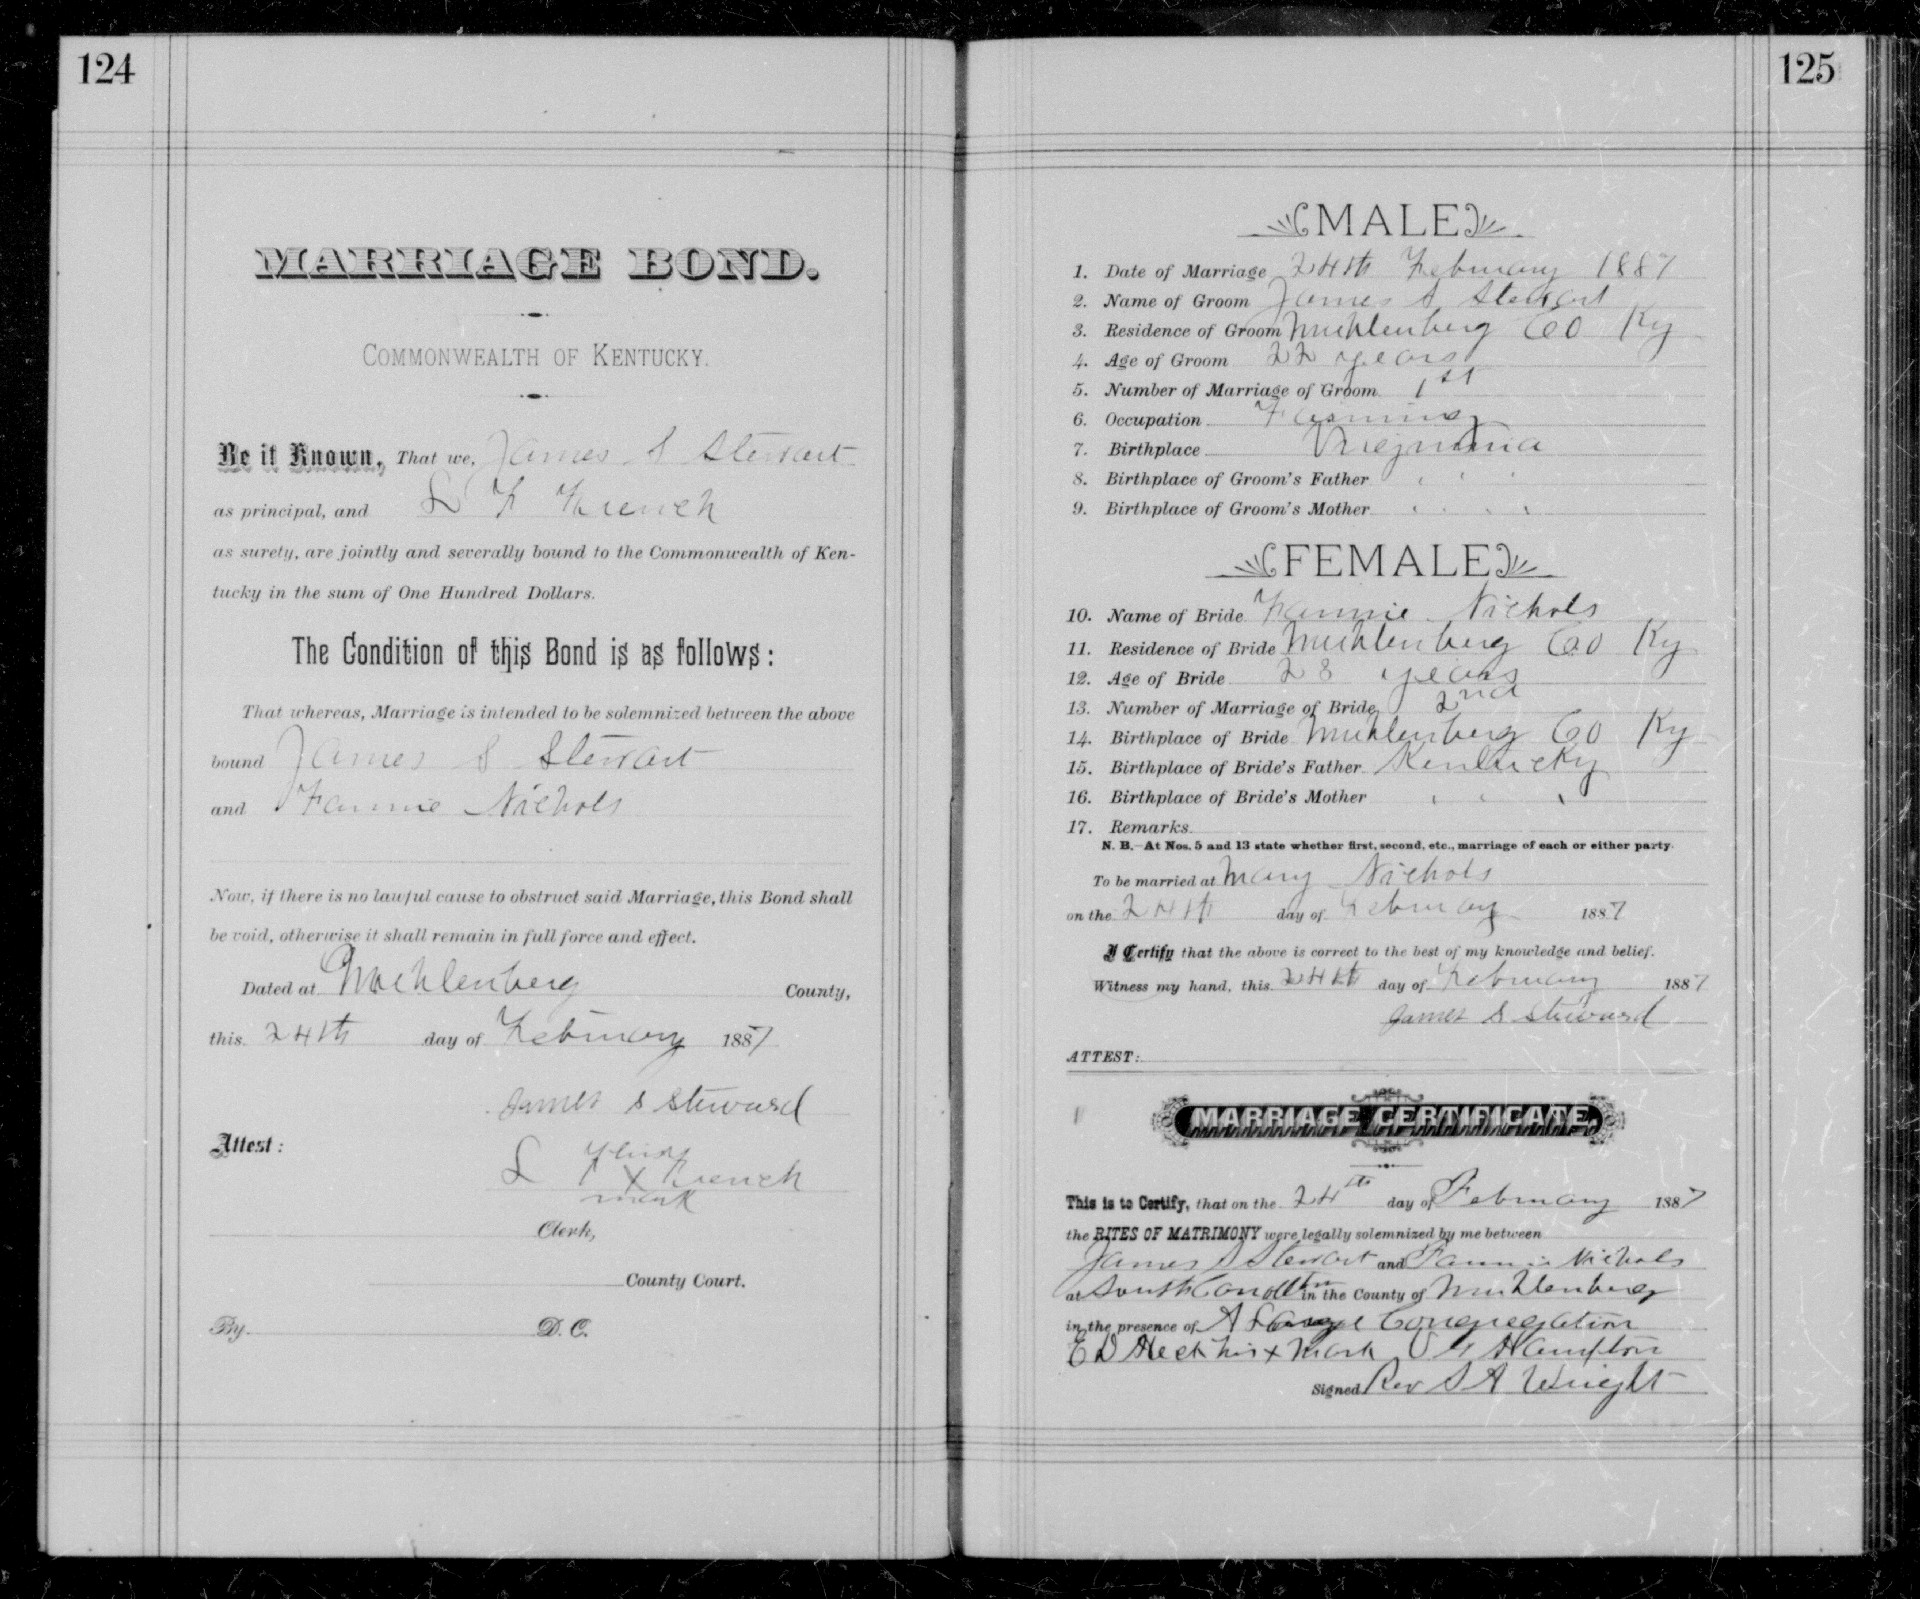 124
MARRIAGE BOND.
COMMONWEALTH OF KENTUCKY.
Be it Known, That we, James S Stewart
as principal, and L F French
as surety, are jointly and severally bound to the Commonwealth of Ken-
tucky in the sum of One Hundred Dollars.
The Condition of this Bond is as follows:
That whereas, Marriage is intended to be solemnized between the above
bound James S Stewart
and Fannie Nichols
Now, if there is no lawful cause to obstruct said Marriage, this Bond shall
be void, otherwise it shall remain in full force and effect.
Dated at Muhlenberg County,
this 24th day of February 1887
James S Steward
Attest:
his
L F X French
mark
Clerk,
County Court.
By D. C.
125
MALE
1. Date of Marriage 24th February 1887
2. Name of Groom James S Stewart
3. Residence of Groom Muhlenberg Co Ky
4. Age of Groom 22 years
5. Number of Marriage of Groom 1st
6. Occupation Farming
7. Birthplace Virginia
8. Birthplace of Groom's Father " "
9. Birthplace of Groom's Mother " "
FEMALE
10. Name of Bride Fannie Nichols
11. Residence of Bride Muhlenberg Co Ky
12. Age of Bride 28 years
13. Number of Marriage of Bride 2nd
14. Birthplace of Bride Muhlenberg Co Ky
15. Birthplace of Bride's Father Kentucky
16. Birthplace of Bride's Mother " "
17. Remarks
N. B.—At Nos. 5 and 13 state whether first, second, etc., marriage of each or either party.
To be married at Mary Nichols
on the 24th day of February 1887
I Certify that the above is correct to the best of my knowledge and belief.
Witness my hand, this 24th day of February 1887
James S Steward
ATTEST:
MARRIAGE CERTIFICATE.
This is to Certify, that on the 24th day of February 1887
the RITES OF MATRIMONY were legally solemnized by me between
James S Stewart and Fannie Nichols
at South in the County of Muhlenberg
in the presence of A Large Congregation
E D his x mark Hampton
Signed Rev S A Wright